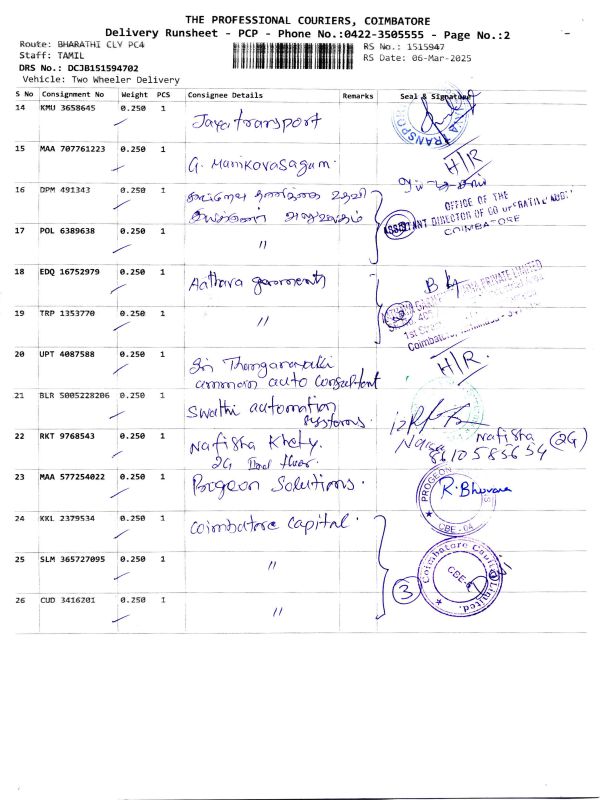 THE PROFESSIONAL COURIERS, COIMBATORE
Delivery Runsheet - PCP - Phone No.:0422-3505555 - Page No.:2
Route: BHARATHI CLY PC4
RS No.: 1515947
Staff: TAMIL
RS Date: 06-Mar-2025
DRS No.: DCJB151594702
Vehicle: Two Wheeler Delivery
S No Consignment No Weight PCS Consignee Details Remarks Seal & Signature
14 KMU 3658645 0.250 1 Jaya transport
15 MAA 707761223 0.250 1 G. Manikavasagam.
H/R
16 DPM 491343 0.250 1
OFFICE OF THE
ASSISTANT DIRECTOR OF CO OPERATIVE AUDIT
COIMBATORE
17 POL 6389638 0.250 1 "
18 EDQ 16752979 0.250 1 Aathava garments
PRIVATE LIMITED
1st Street
Coimbatore
19 TRP 1353770 0.250 1 "
20 UPT 4087588 0.250 1 Sri Thanganayaki
amman auto Consultant
H/R.
21 BLR 5005228206 0.250 1 Swathi automation
systems.
22 RKT 9768543 0.250 1 Nafisha Khety.
2G IInd floor.
Nafisha (2G)
8610585654
23 MAA 577254022 0.250 1 Progeon Solutions.
PROGEON
R. Bhuvana
CBE - 04
24 KKL 2379534 0.250 1 Coimbatore Capital.
25 SLM 365727095 0.250 1 "
3
Coimbatore Capital Limited.
CBE
26 CUD 3416201 0.250 1 "